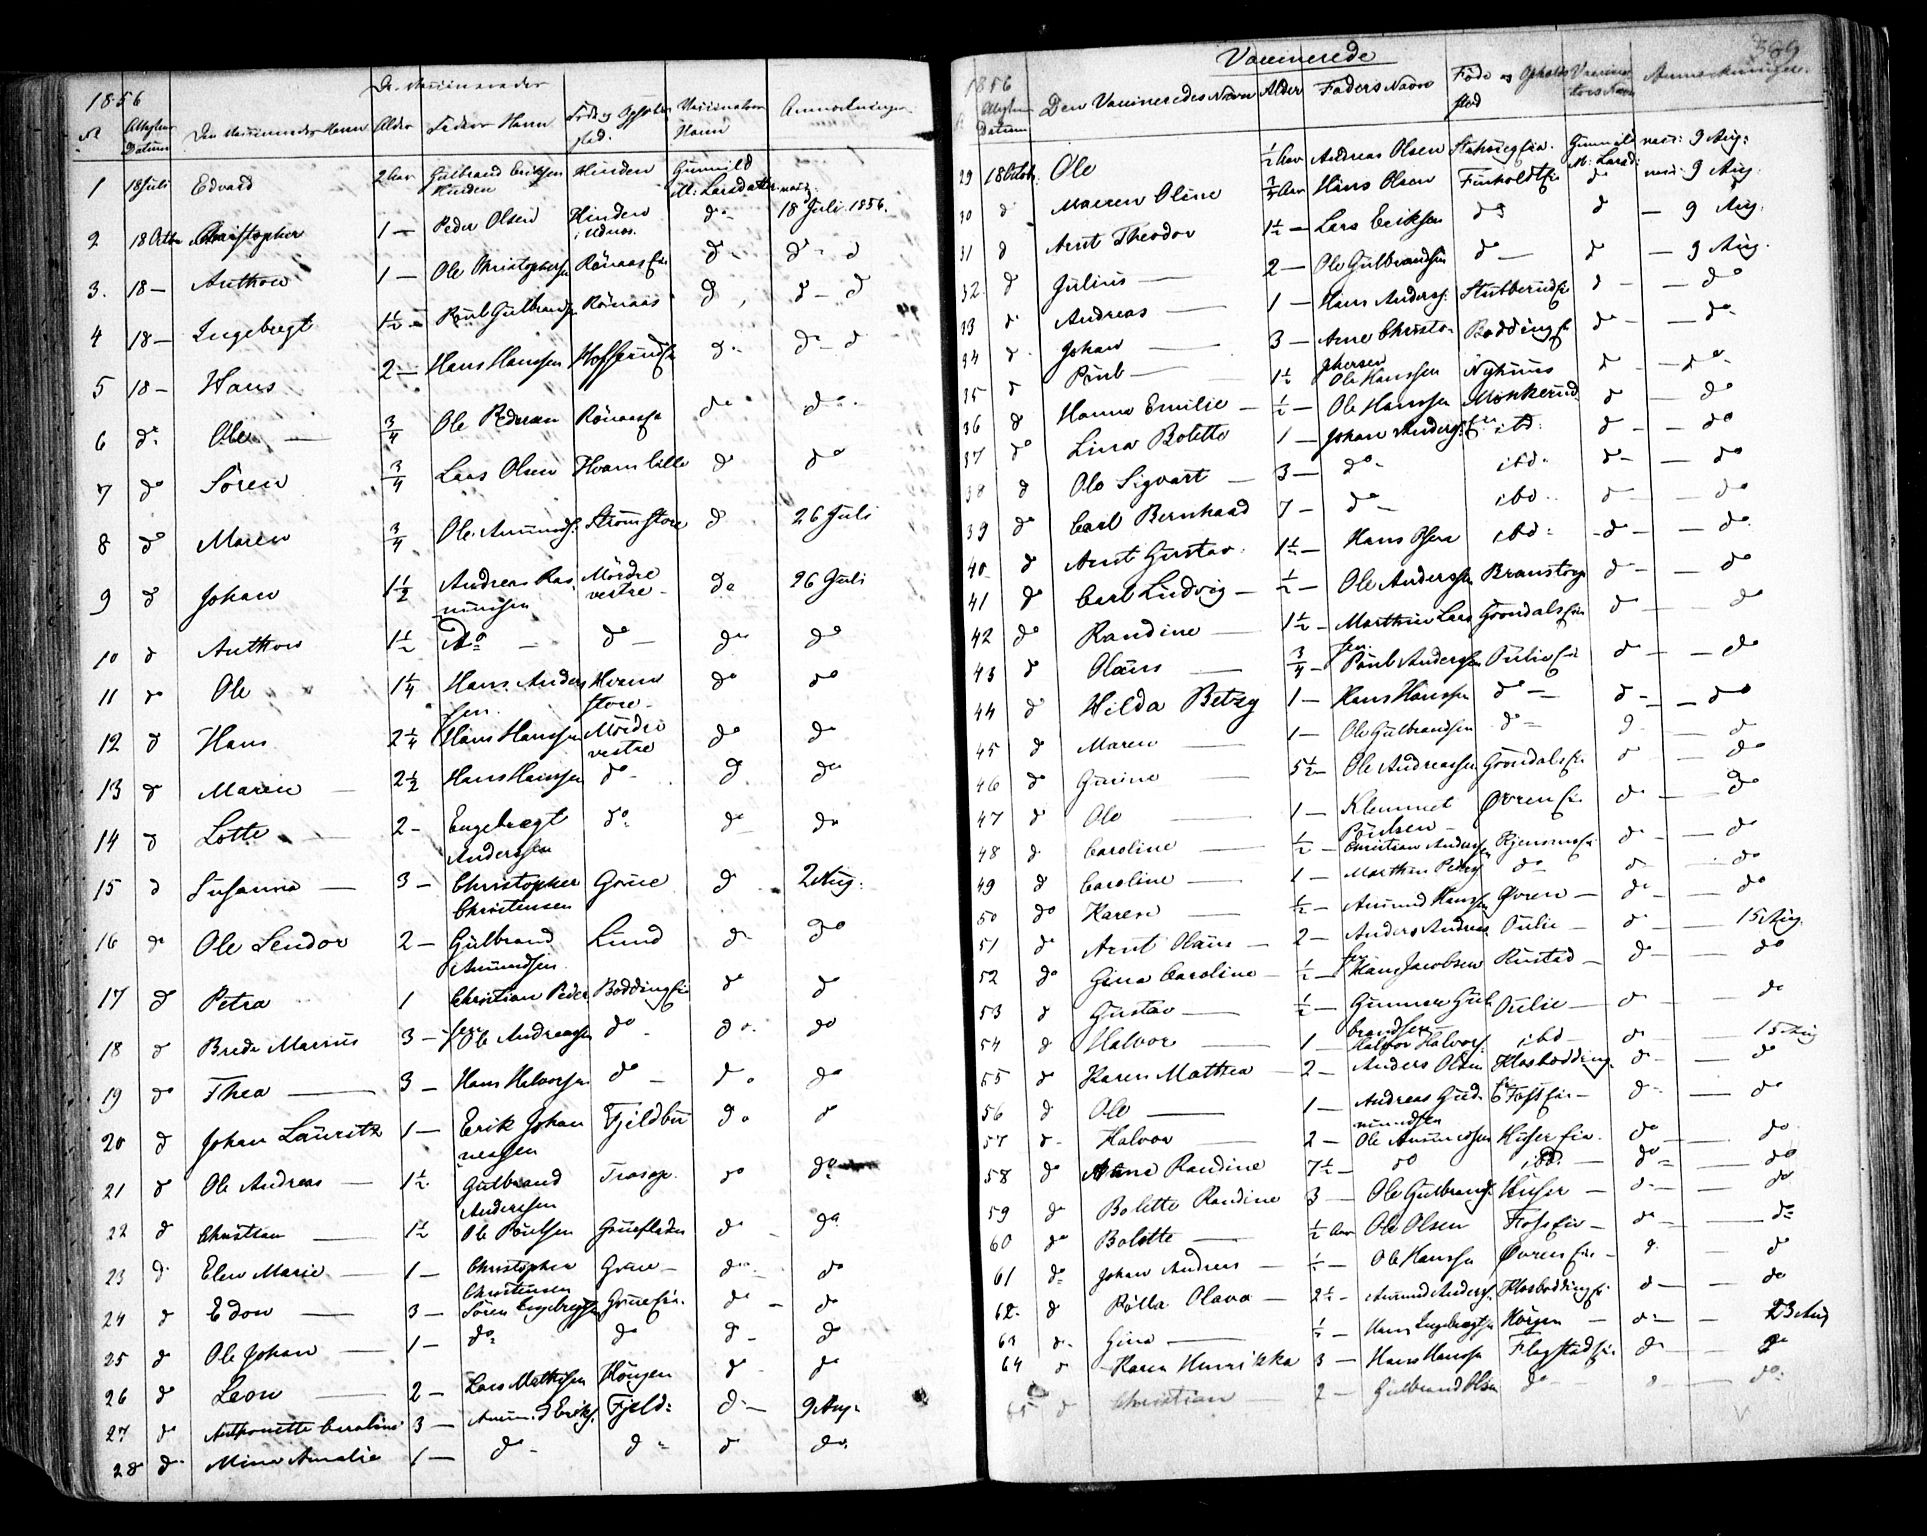 1856
De Vaccinerede
No Attestens Datum Den Vaccineredes Navn Alder Faders Navn Føde og Opholds sted. Vaccinateurs Navn Anmærkninger
1 18 Juli Edvard 2 Aar Gulbrand Eriksen Hinden Hinden Gunnild M: Larsdatter
2 18 Octbr Christopher 1 — Peder Olsen Hinden i Udnæs. do 18 Juli 1856.
3. 18 — Anthon 1 — Ole Christophersen Rönaas Ei. do do do
4 18 — Ingebregt 1½ — Poul Gulbrandsen Rönaas do do do
5 18 — Hans 2 — Hans Hanssen Hofserud do do do
6 do Ole — ¾ Ole Pedersen Rönaas do do
7 do Sören ¾ Lars Olsen Hvam lille do do
8 do Maren ¾ Ole Amunds. Ström store do 26 Juli
9 do Johan 1½ Andreas Rasmussen Mördre vestre — do 26 Juli
10 do Anthon 1½ do — do — do do
11 do Ole 1¼ Hans Anderssen Hvam store — do do
12 do Hans 2¼ Hans Hanssen Mördre vestre do do
13 do Maren — 2½ Hans Hanssen do — do do
14 do Lotte — 2 — Engebregt Anderssen do do do
15 do Susanna — 3 — Christopher Christensen Grue do 2 Aug:
16 do Ole Sendor 2 — Gulbrand Amundsen Lund do do
17 do Petra 1 Christian Pedersen Bodding Ei do do
18 do Brede Marius 3 — Ole Andreassen do do do
19 do Thea — 3 — Hans Halvorsen do — do do
20 do Johan Lauritz 1 — Erik Johannessen Fjeldbu do do
21 do Ole Andreas — 1½ Gulbrand Anderssen Trasop. do do
22 do Christian — 1½ Ole Poulsen Grueflaten do do
23 do Elen Marie — 1 — Christopher Christensen Grue — do do
24 do Edon — 3 — Sören Engebregtsen Grue Ei. do do
25 do Ole Johan — 1 — do do do do
26 do Leon — 2 — Lars Mathisen Höugen do do
27 do Anthonette Caroline 3 — Amund Eriks. Fjeld: do 9 Aug.
28 do Mina Amalie 1 — do do do do
Vaccinerede
1856
Attestens Datum Den Vaccineredes Navn Alder Faders Navn Føde og Opholds sted Vaccinators Navn Anmærkninger.
29 18 Octob. Ole ½ Aar Andreas Olsen Gunnild M: Larsd: vacc: 9 Aug:
30 do Maren Oline ¾ Aar Hans Olsen Finholdt Ei do vacc: 9 Aug.
31 do Arnt Theodor 1½ — Lars Eriksen do do — 9 Aug.
32. do Julius — 2 — Ole Gulbrandsen do — do — 9 Aug.
33 do Andreas — 1 — Hans Anders. Stubberud Ei do — do
34 do Johan — 3 — Arne Christophersen Bodding Ei do — do
35 do Poul — 1½ Ole Hanssen Nyhuus do — do
36 do Hanna Emilie — ½ — Ole Hanssen Mönkerud do — do
37 do Lina Bolette 1 — Johan Anders. ibd. do — do
38 do Ole Sigvart — 3 — do ibd. do — do
39 do Carl Bernhard 7 — do — ibd. do — do
40 do Arnt Gustav. 1½ — Hans Olsen ibd. do — do
41 do Carl Ludvig — ½ — Ole Anderssen Branstorp do — do
42 do Randine — 1½ — Marthin Larssen Gröndals Ei do — do
43 do Olaus — ¾ — Poul Anderssen Oulie Ei do — do
44 do Hilda Betzy 1 — Hans Hanssen do — do — do
45 do Maren — 1 — Ole Gulbrandsen do — do — do
46 do Gurine — 5½ — Ole Andreassen Gröndals Ei do do
47 do Ole — 1 — Klemmet Poulsen — Øvren Ei do — do
48 do Caroline — ½ — Christian Anderssen do — do
49 do Caroline — 1 — Marthin Peders. do do do
50 do Karen — ½ — Amund Hanssen Øvren — do — do
51 do Arnt Olaus — 2 — Anders Andreassen Oulie — do — 15 Aug.
52 do Gina Caroline — ½ — Hans Jacobsen Rustad — do — do
53 do Gustav — ½ — Gunnar Gulbrandsen — Oulie — do — do
54 do Halvor — 1 — Halvor Halvors. ibd — do — 15 Aug
55 do Karen Mathea — 2 — Anders Olsen Klosbodding. do — do
56 do Ole — 1 — Andreas Gudmundsen Foss Ei — do — do
57 do Halvor — 2 — Ole Amundsen Huser Ei. do — do
58 do Anne Randine 7½ — do ibd. — do — do
59 do Bolette Randine 3 — Ole Gulbrands. Huser — do — do
60 do Bolette — ½ Aar Ole Olsen Foss Ei — do — do
61 do Johan Andreas — ½ — Ole Hanssen Øvren Ei — do — do
62. do Olava — 2½ — Amund Anders. Klosbodding Ei do — do
63 do Gina — ½ — Hans Engebregtsen Högen — do — 23 Aug
64 do Karen Hurrikka 3 — Hans Hanssen Flagstad Ei do — do
65 do Christian — 2 — Gulbrand Olsen do — do — do